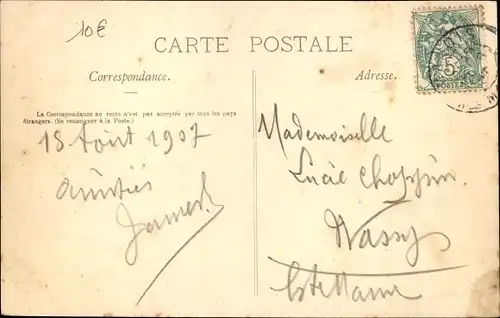 10€
CARTE POSTALE
Correspondance.
Adresse.
La Correspondance au recto n'est pas acceptée par tous les pays
étrangers. (Se renseigner à la Poste.)
18 Août 1907
Amitiés
Mademoiselle
Lucie
Wassy
Hte Marne
5c
POSTES